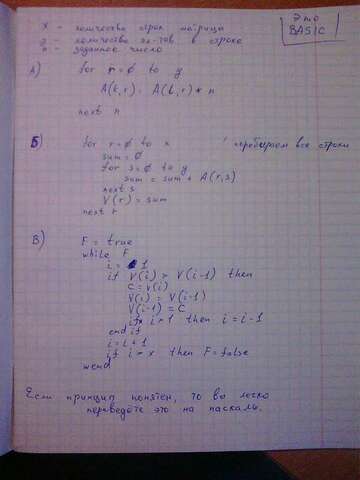 x - количество строк матрицы
y - количество эл-тов в строке
n - заданное число
Это
BASIC
А)
for r = 0 to y
A(k,r) = A(k,r) * n
next r
Б)
for r = 0 to x ' перебираем все строки
sum = 0
for s = 0 to y
sum = sum + A(r,s)
next s
V(r) = sum
next r
В)
F = true
while F
i = 1
if V(i) > V(i-1) then
C = V(i)
V(i) = V(i-1)
V(i-1) = C
if i > 1 then i = i-1
end if
i = i + 1
if i > x then F = false
wend
Если принцип понятен, то вы легко
переведёте это на паскаль.